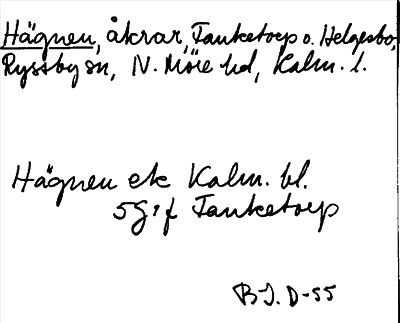 Hägnen, åkrar, Tanketorp o. Helgesbo,
Ryssby sn, N. Möre hd, Kalm. l.
Hägnen ek Kalm. bl.
5G:f Tanketorp
BJ. D-55